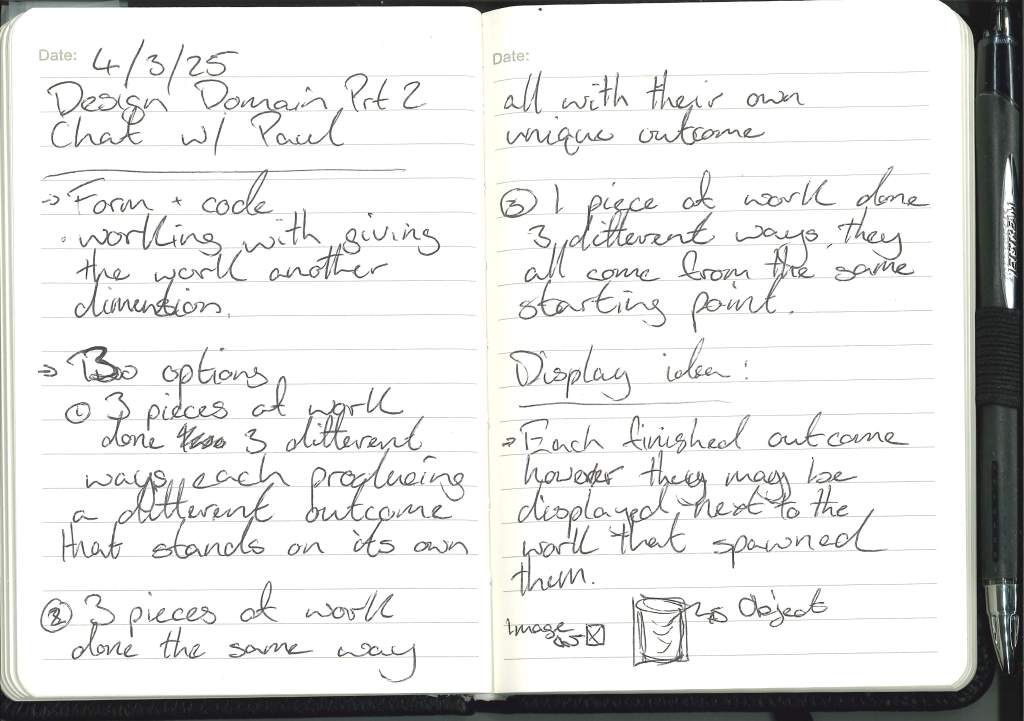 Date: 4/3/25
Design Domain Prt 2
Chat w/ Paul
→ Form + code
· working with giving
the work another
dimension.
→ 3 options
① 3 pieces of work
done 3 different
ways, each producing
a different outcome
that stands on its own
② 3 pieces of work
done the same way
Date:
all with their own
unique outcome
③ 1 piece of work done
3 different ways, they
all come from the same
starting point.
Display idea:
→ Each finished outcome
however they may be
displayed, next to the
work that spawned
them.
Image
Object